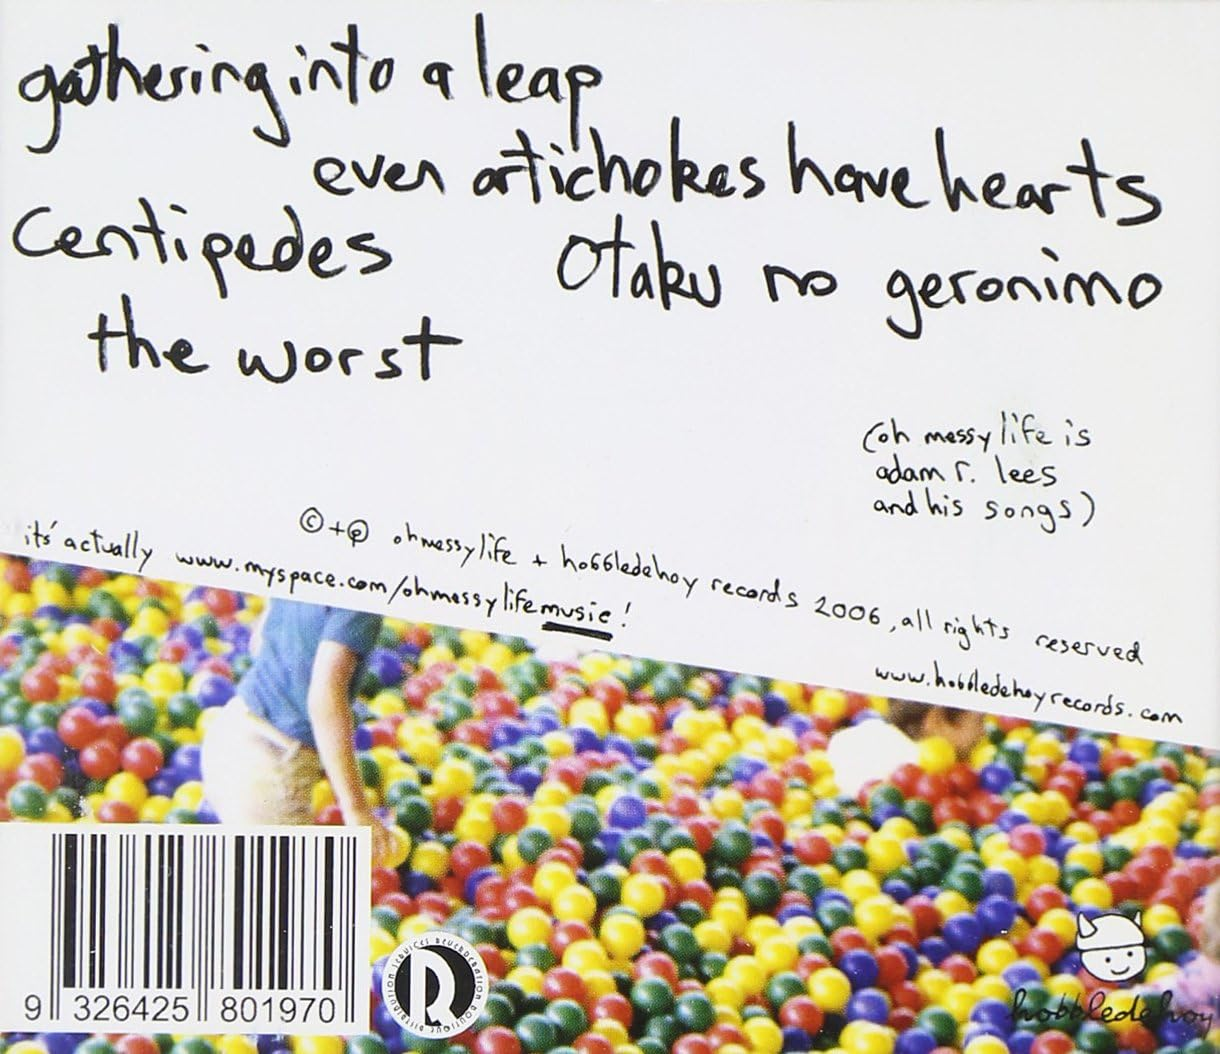 gathering into a leap
even artichokes have hearts
Centipedes
Otaku no geronimo
the worst
(oh messy life is
adam r. lees
and his songs)
© + ℗ ohmessylife + hobbledehoy records 2006, all rights reserved
it's actually www.myspace.com/ohmessylifemusic!
www.hobbledehoyrecords.com
9 326425 801970
R
hobbledehoy